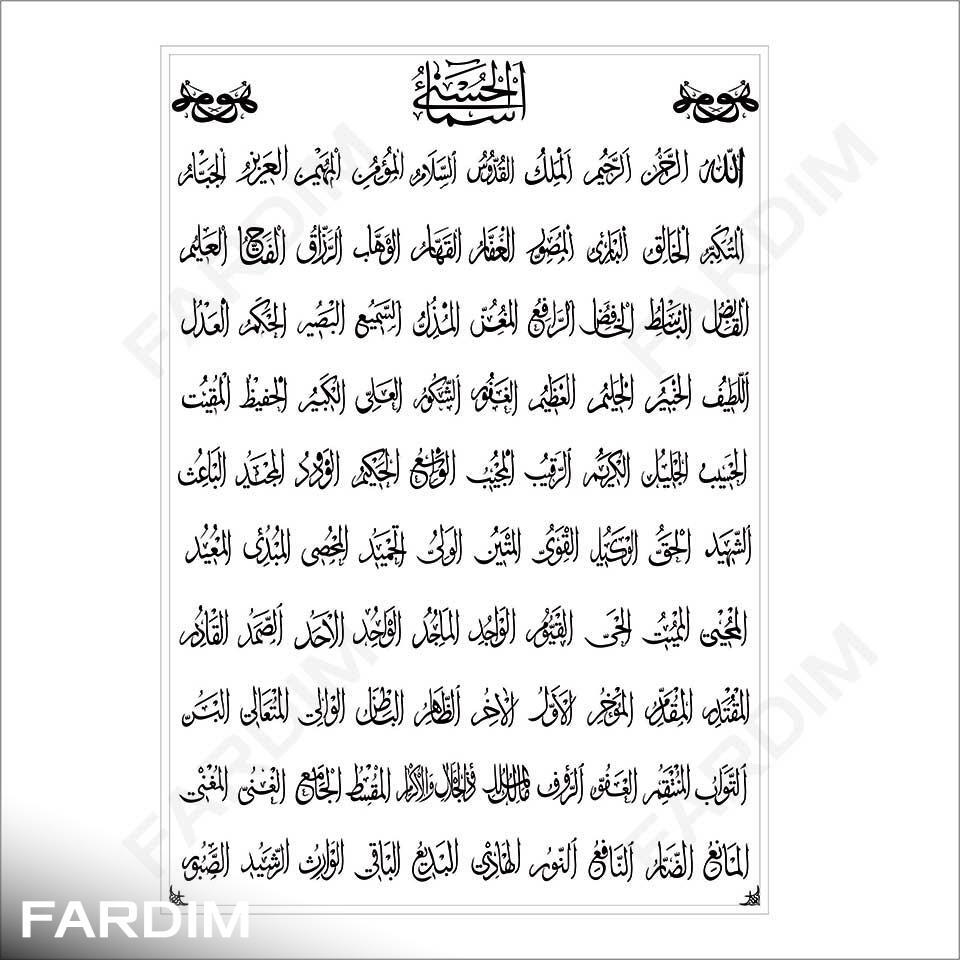 أسماء الحسنى
الله الرحمن الرحيم الملك القدوس السلام المؤمن المهيمن العزيز الجبار
المتكبر الخالق البارئ المصور الغفار القهار الوهاب الرزاق الفتاح العليم
القابض الباسط الخافض الرافع المعز المذل السميع البصير الحكم العدل
اللطيف الخبير الحليم العظيم الغفور الشكور العلي الكبير الحفيظ المقيت
الحسيب الجليل الكريم الرقيب المجيب الواسع الحكيم الودود المجيد الباعث
الشهيد الحق الوكيل القوي المتين الولي الحميد المحصي المبدئ المعيد
المحيي المميت الحي القيوم الواجد الماجد الواحد الأحد الصمد القادر
المقتدر المقدم المؤخر الأول الآخر الظاهر الباطن الوالي المتعالي البر
التواب المنتقم العفو الرؤف مالك الملك ذو الجلال والإكرام المقسط الجامع الغني المغني
المانع الضار النافع النور الهادي البديع الباقي الوارث الرشيد الصبور
FARDIM